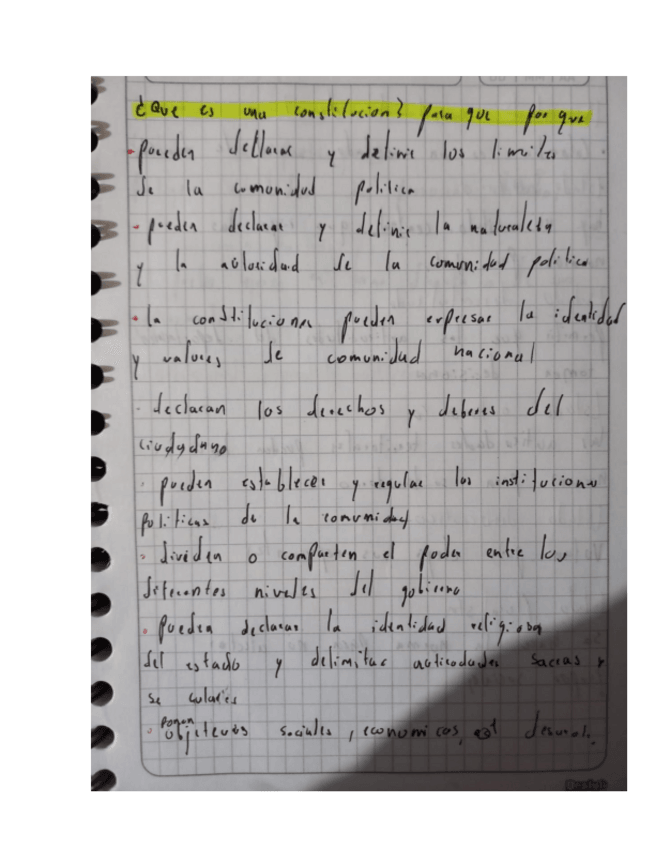 ¿Que es una constitucion? para que por que
- pueden declarar y definir los limites
de la comunidad politica
- pueden declarar y definir la naturaleza
y la autoridad de la comunidad politica
• la constituciones pueden expresar la identidad
y valores de comunidad nacional
· declaran los derechos y deberes del
ciudydano
· pueden establecer y regular las instituciones
politicas de la comunidad
· dividen o comparten el poder entre los
diferentes niveles del gobierno
• pueden declarar la identidad religiosa
del estado y delimitar autoridades sacras y
se culares
ponen
· objetivos sociales, economicos,